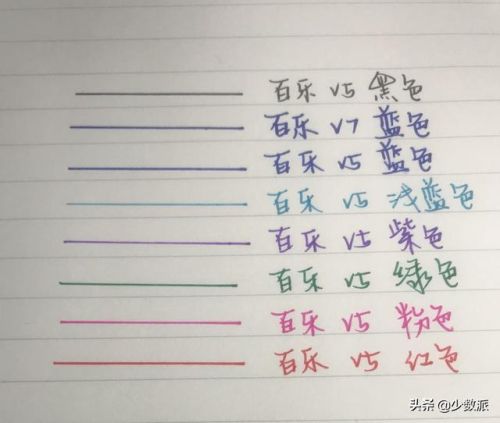 百乐 V5 黑色
百乐 V7 蓝色
百乐 V5 蓝色
百乐 V5 浅蓝色
百乐 V5 紫色
百乐 V5 绿色
百乐 V5 粉色
百乐 V5 红色
头条 @少数派